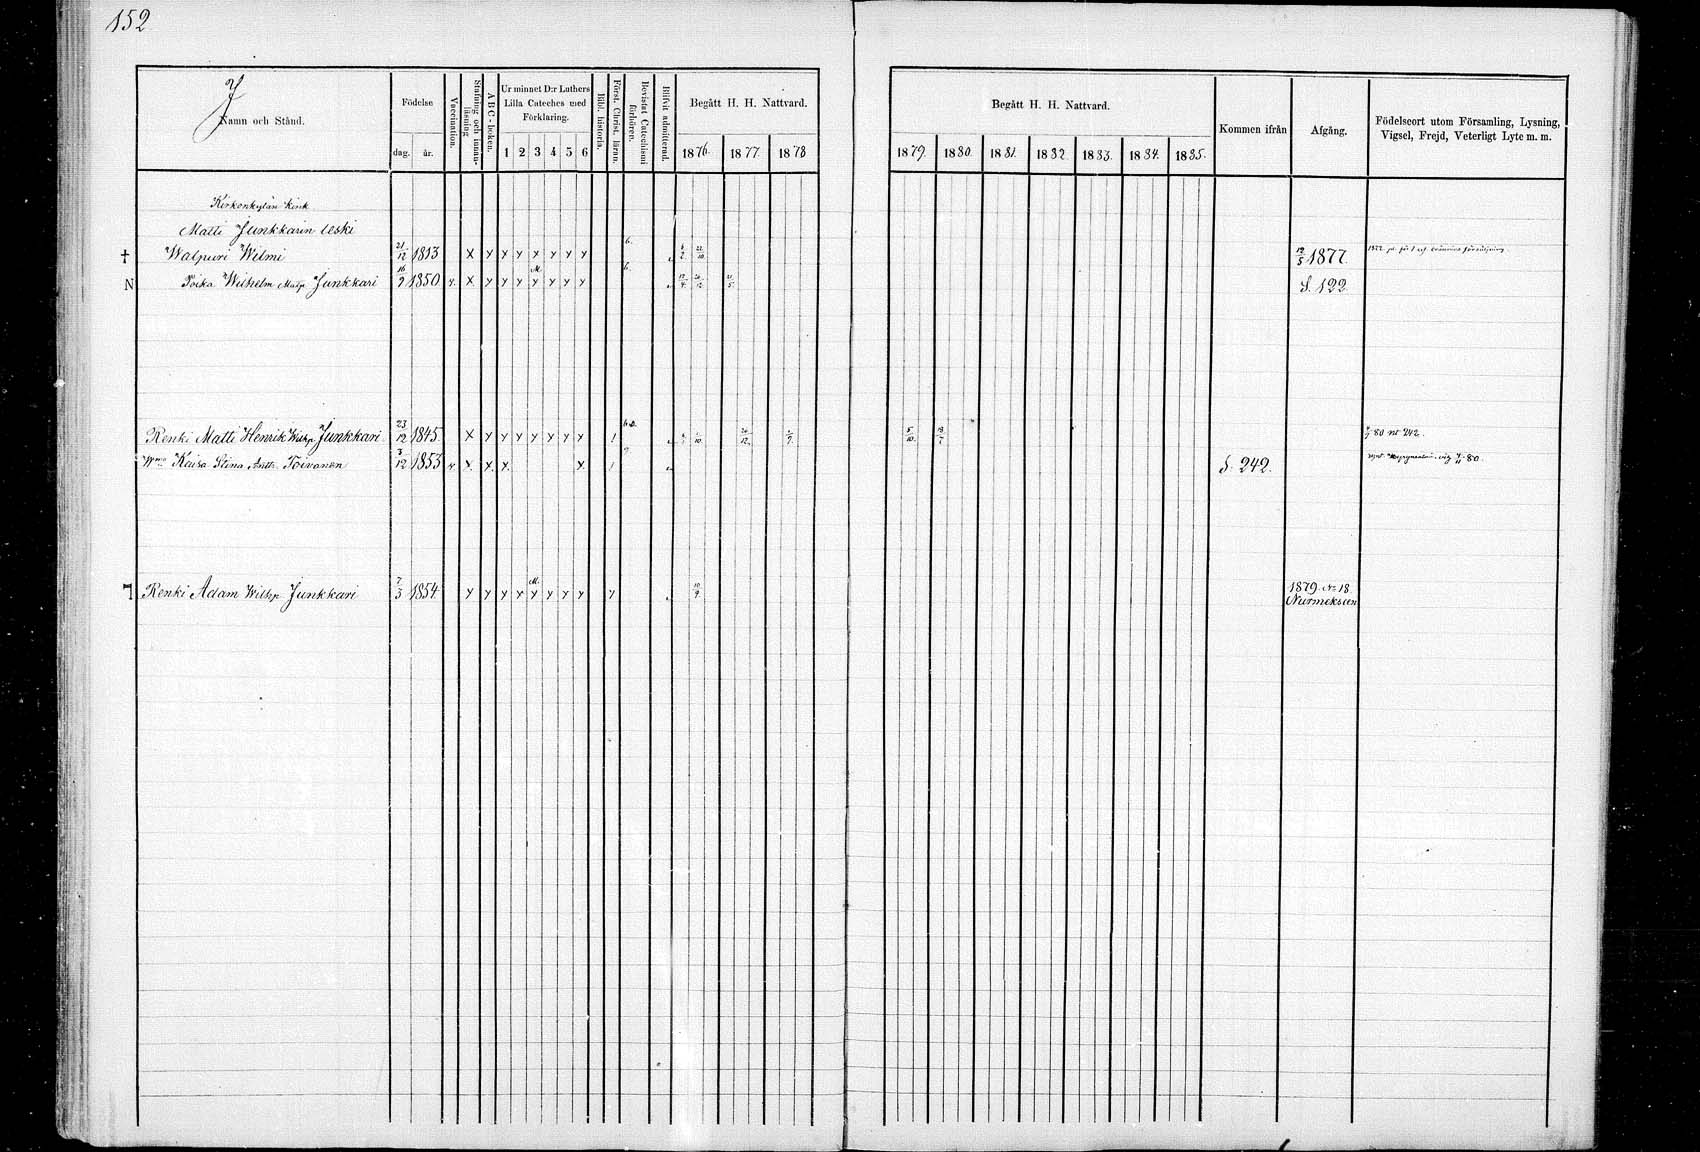 152
J
Namn och Stånd.
Födelse
dag. år.
Vaccination.
Stafning och innan-läsning
A B C - boken.
Ur minnet D:r Luthers
Lilla Cateches med
Förklaring.
1 2 3 4 5 6
Bibl. historia.
Först. Christ. läran.
Bevistat Catechismi förhören.
Blifvit admitterad.
Begått H. H. Nattvard.
1876. 1877. 1878
Begått H. H. Nattvard.
1879. 1880. 1881. 1882. 1883. 1884. 1885.
Kommen ifrån
Afgång.
Födelseort utom Församling, Lysning,
Vigsel, Frejd, Veterligt Lyte m. m.
Kirkonkylän kink
Matti Junkkarin leski
† Walpuri Wilmi 21/12 1813 x y y y y y y y 6. 12/5 1877.
N Poika Wilhelm Matp Junkkari 16/9 1850 v. x y y y M. y y y y 6. 21/5. S. 122.
Renki Matti Henrik Wilhp Junkkari 23/12 1845 x y y y y y y y 1 5/10.
80 nt 242.
Kaisa Stina Antt. Toivanen 3/12 1853 v. x x x x 1 S. 242.
Renki Adam Wilhp Junkkari 7/3 1854. y y y y M. y y y y y 10/9. 1879. No 18
Nurmekseen